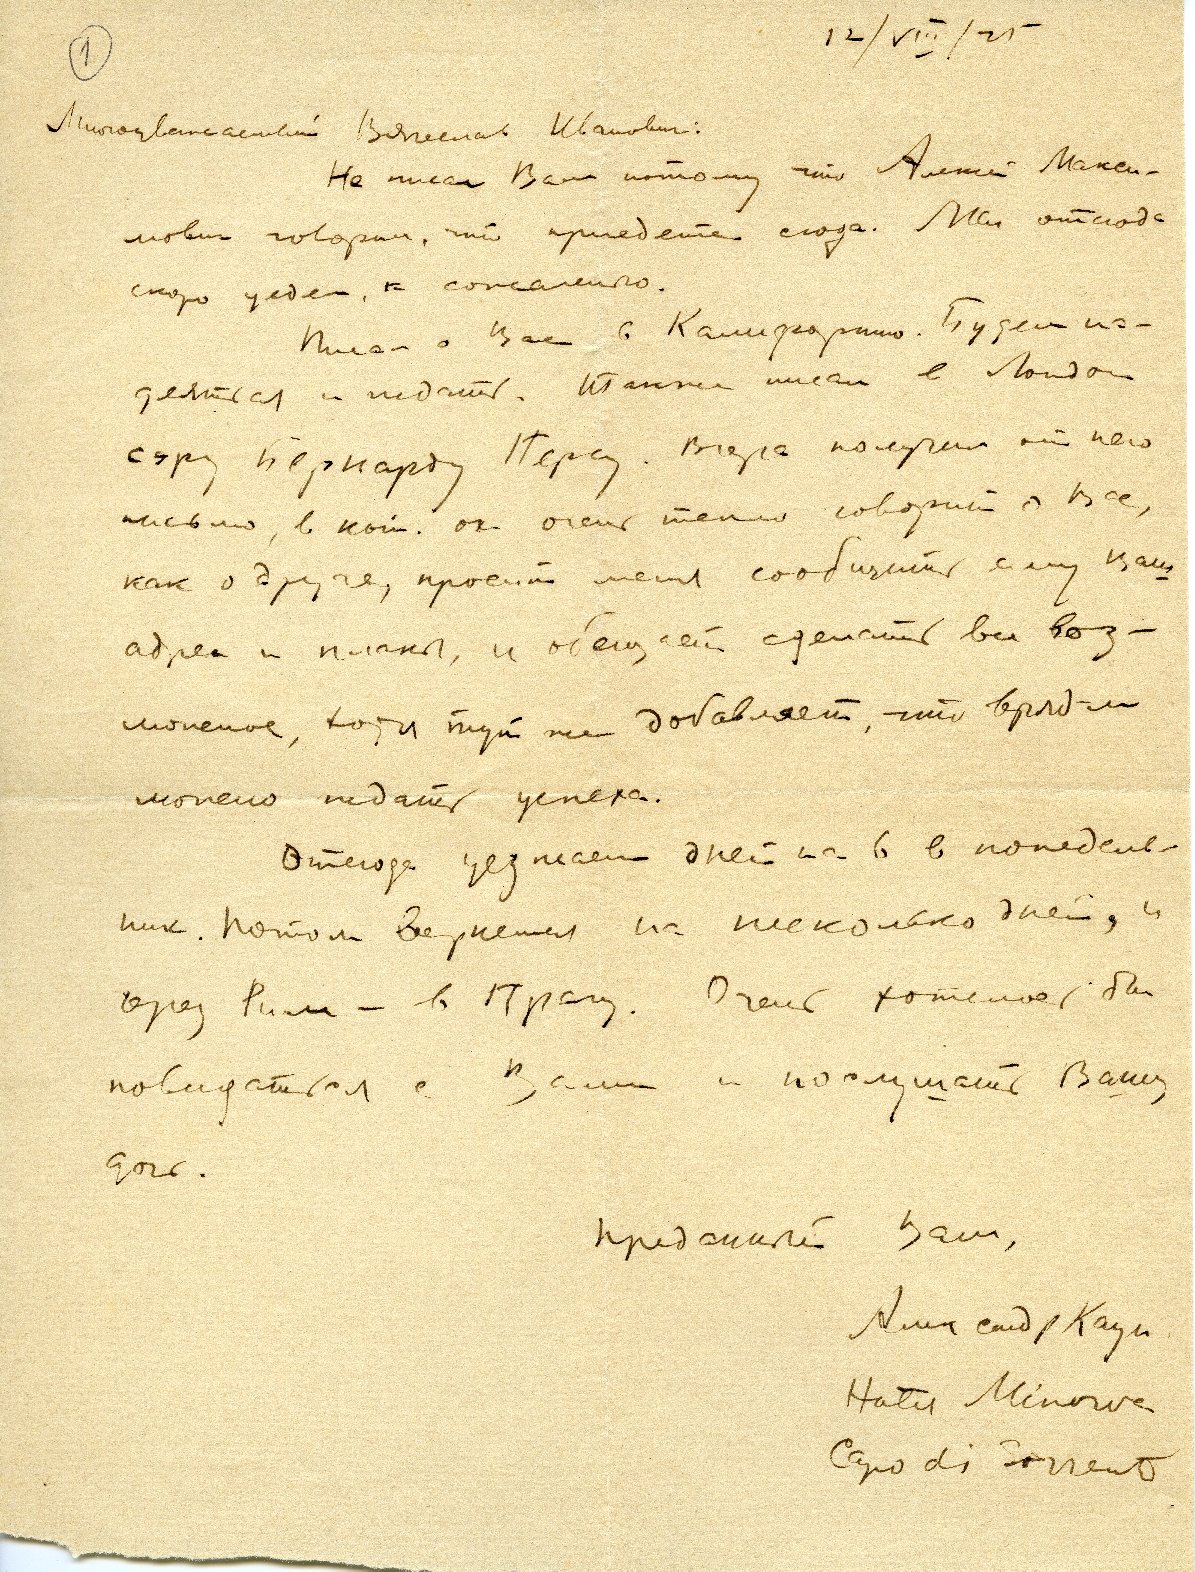 1
12/VIII/25
Многоуважаемый Вячеслав Иванович:
Не писал Вам потому что Алексей Макси-
мович говорил, что приедете сюда. Мы отсюда
скоро уедем, к сожалению.
Писал о Вас в Калифорнию. Будем на-
деяться и ждать. Также писал в London
сэру Бернарду Персу. Вчера получил от него
письмо, в кот. он очень тепло говорит о Вас,
как о друге, просит меня сообщить ему Ваш
адрес и планы, и обещает сделать все воз-
можное, хотя тут же добавляет, что врядли
можно ждать успеха.
Отсюда уезжаем дней на 6 в понедель-
ник. Потом вернемся на несколько дней, и
чрез Рим – в Прагу. Очень хотелось бы
повидаться с Вами и послушать Вашу
дочь.
Преданный Вам,
Александр Каун
Hotel Minerva
Capo di Sorrento